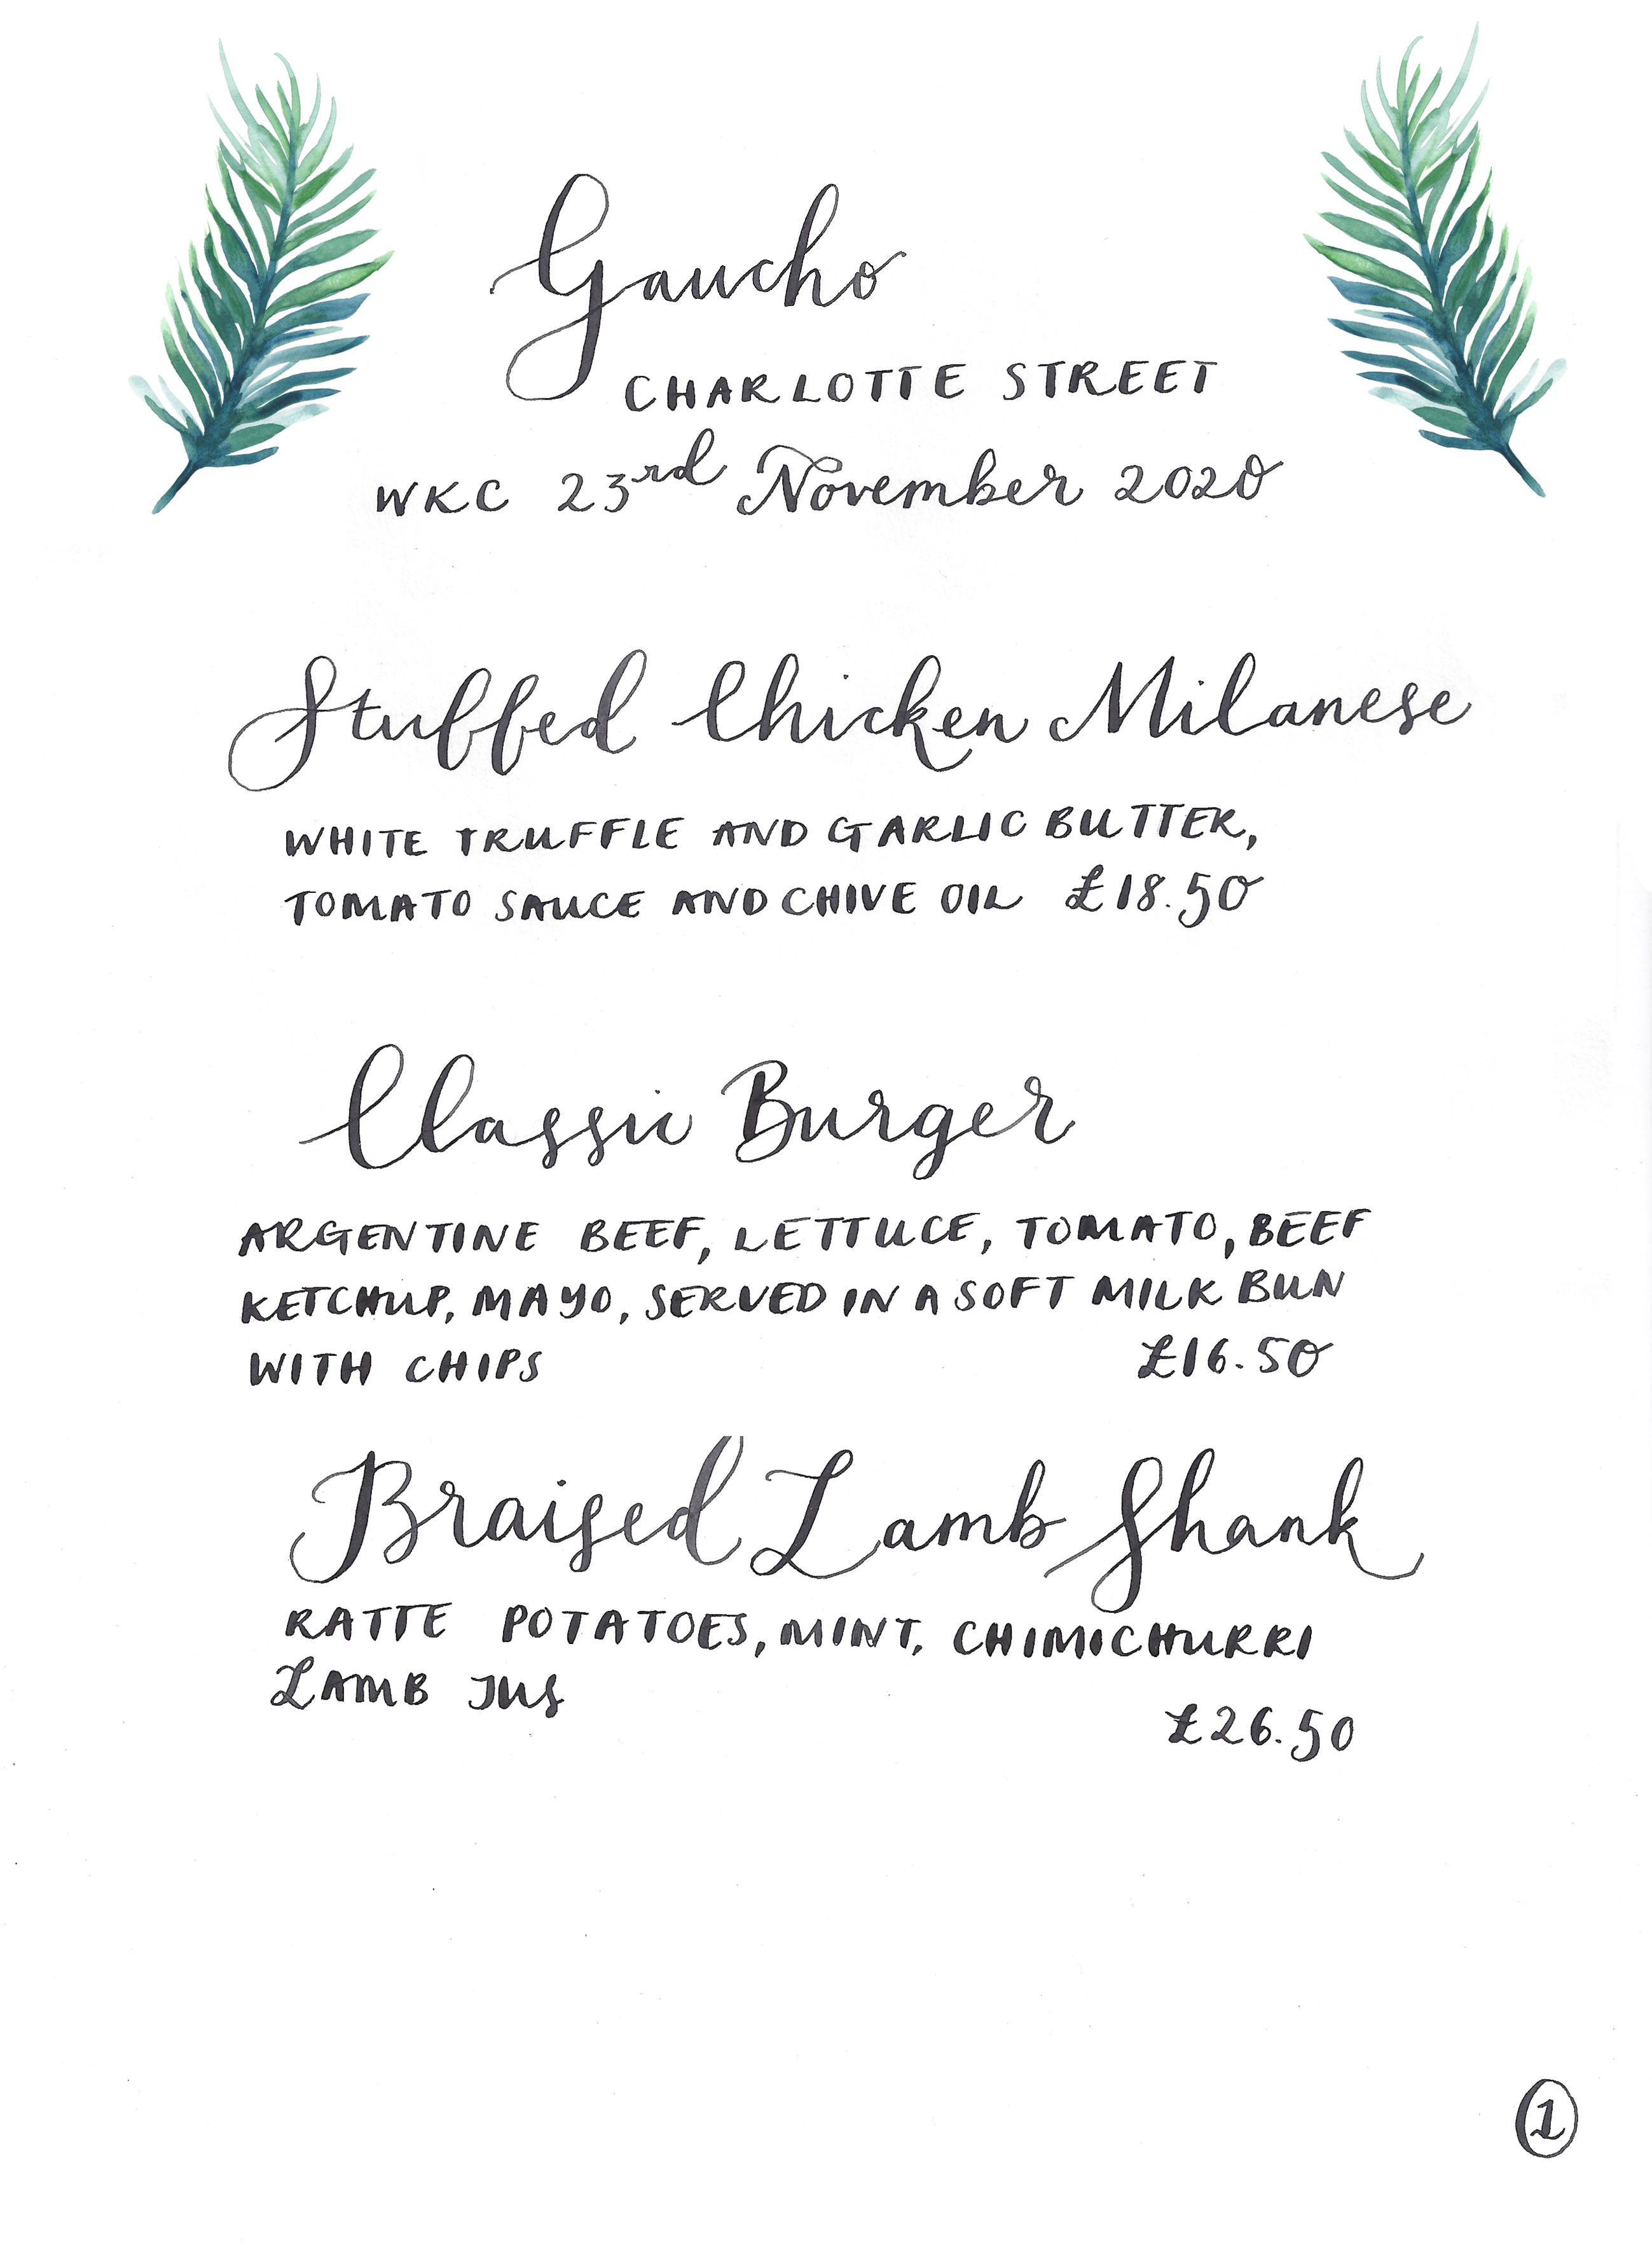 Gaucho
CHARLOTTE STREET
WKC 23rd November 2020
Stuffed Chicken Milanese
WHITE TRUFFLE AND GARLIC BUTTER,
TOMATO SAUCE AND CHIVE OIL £18.50
Classic Burger
ARGENTINE BEEF, LETTUCE, TOMATO, BEEF
KETCHUP, MAYO, SERVED IN A SOFT MILK BUN
WITH CHIPS £16.50
Braised Lamb Shank
RATTE POTATOES, MINT, CHIMICHURRI
LAMB JUS
£26.50
1